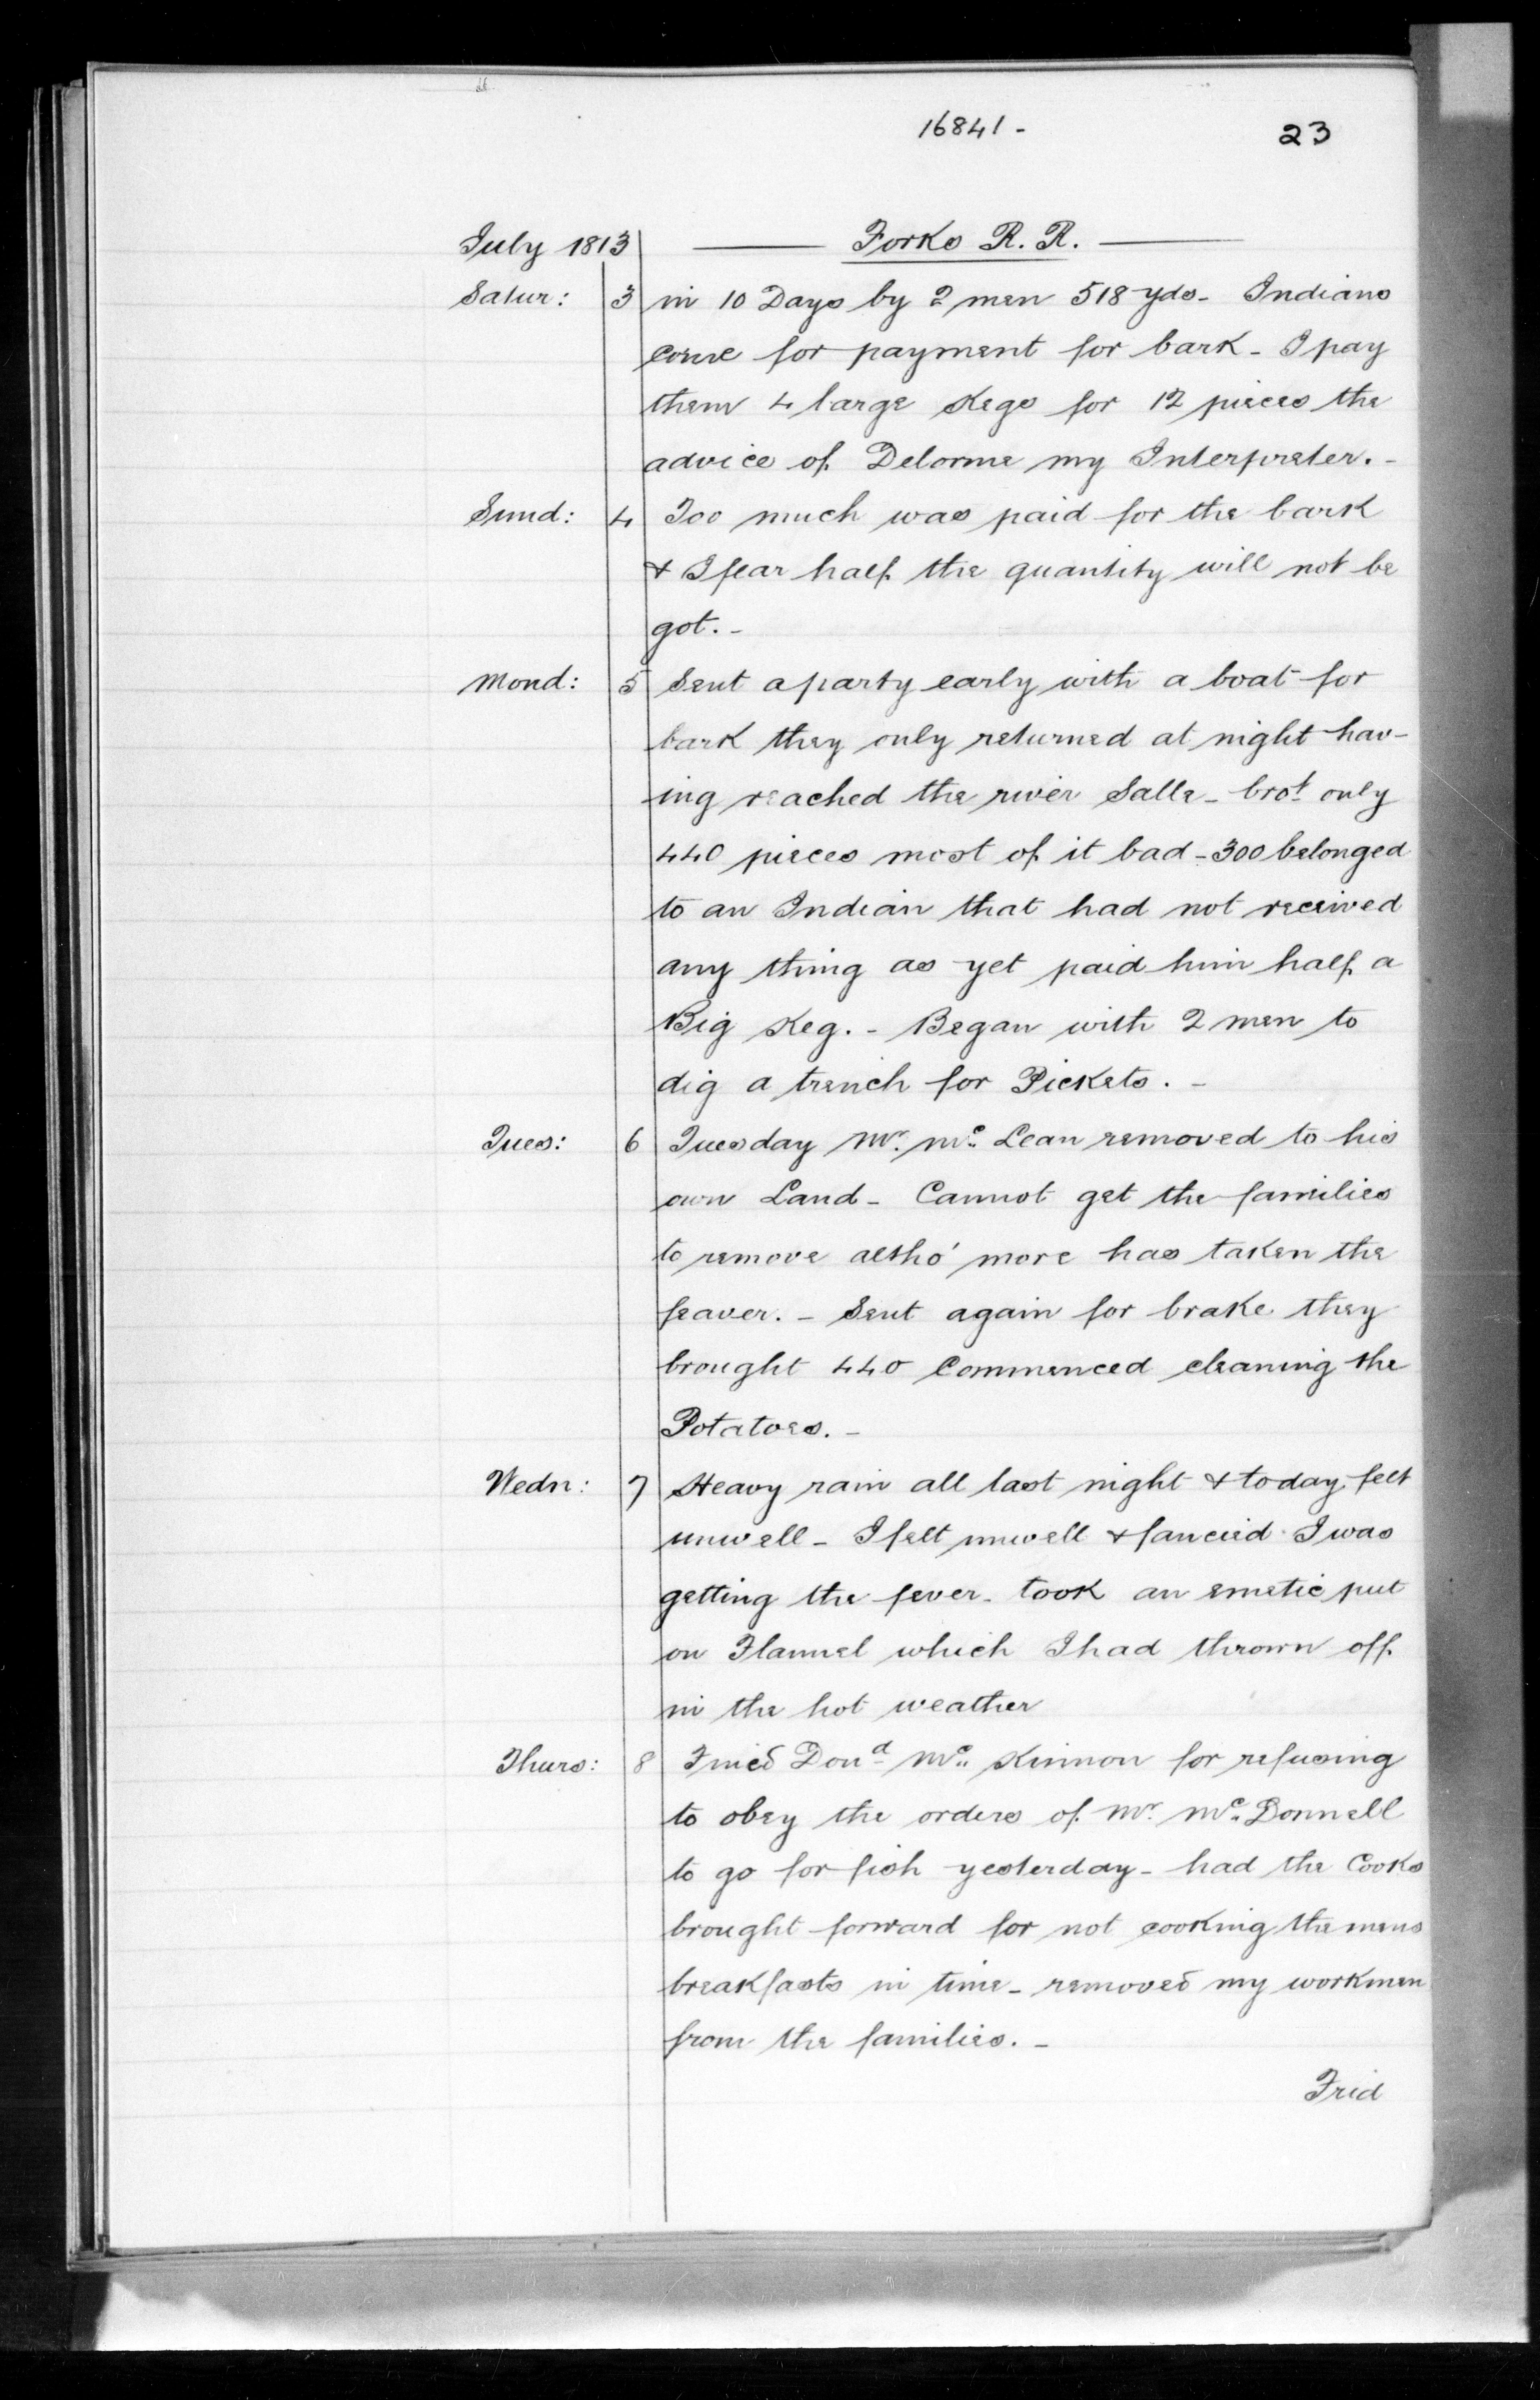 16841 -
23
July 1813
Forks R. R.
Satur: 3 in 10 Days by 2 men 518 yds - Indians
come for payment for bark - I pay
them 4 large Kegs for 12 pieces the
advice of Delorme my Interpreter. -
Sund: 4 Too much was paid for the bark
& I fear half the quantity will not be
got. -
Mond: 5 Sent a party early with a boat for
bark they only returned at night hav-
ing reached the river Salle - brot. only
440 pieces most of it bad - 300 belonged
to an Indian that had not received
any thing as yet paid him half a
Big Keg. - Began with 2 men to
dig a trench for Pickets. -
Tues: 6 Tuesday Mr. Mc. Lean removed to his
own Land - Cannot get the families
to remove altho' more has taken the
feaver. - Sent again for brake they
brought 440 Commenced cleaning the
Potatoes. -
Wedn: 7 Heavy rain all last night & today felt
unwell - I felt unwell & fancied I was
getting the fever - took an emetic put
on Flannel which I had thrown off
in the hot weather
Thurs: 8 Fined Dond. Mc. Kinnon for refusing
to obey the orders of Mr. Mc. Donnell
to go for fish yesterday - had the Cooks
brought forward for not cooking the mens
breakfasts in time - removed my workmen
from the families. -
Frid